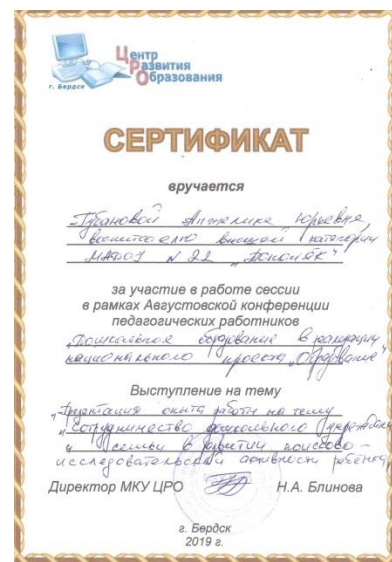 Центр
Развития
Образования
г. Бердск
СЕРТИФИКАТ
вручается
Губановой Анжелике Юрьевне,
воспитателю высшей категории
№ 22 "Тополёк"
за участие в работе сессии
в рамках Августовской конференции
педагогических работников
"Дошкольное образование в реализации
национального проекта "Образование"
Выступление на тему
опыта работы на тему
"Сотрудничество дошкольного учреждения
и семьи в развитии поисково-
исследовательской активности ребёнка"
Директор МКУ ЦРО Н.А. Блинова
г. Бердск
2019 г.